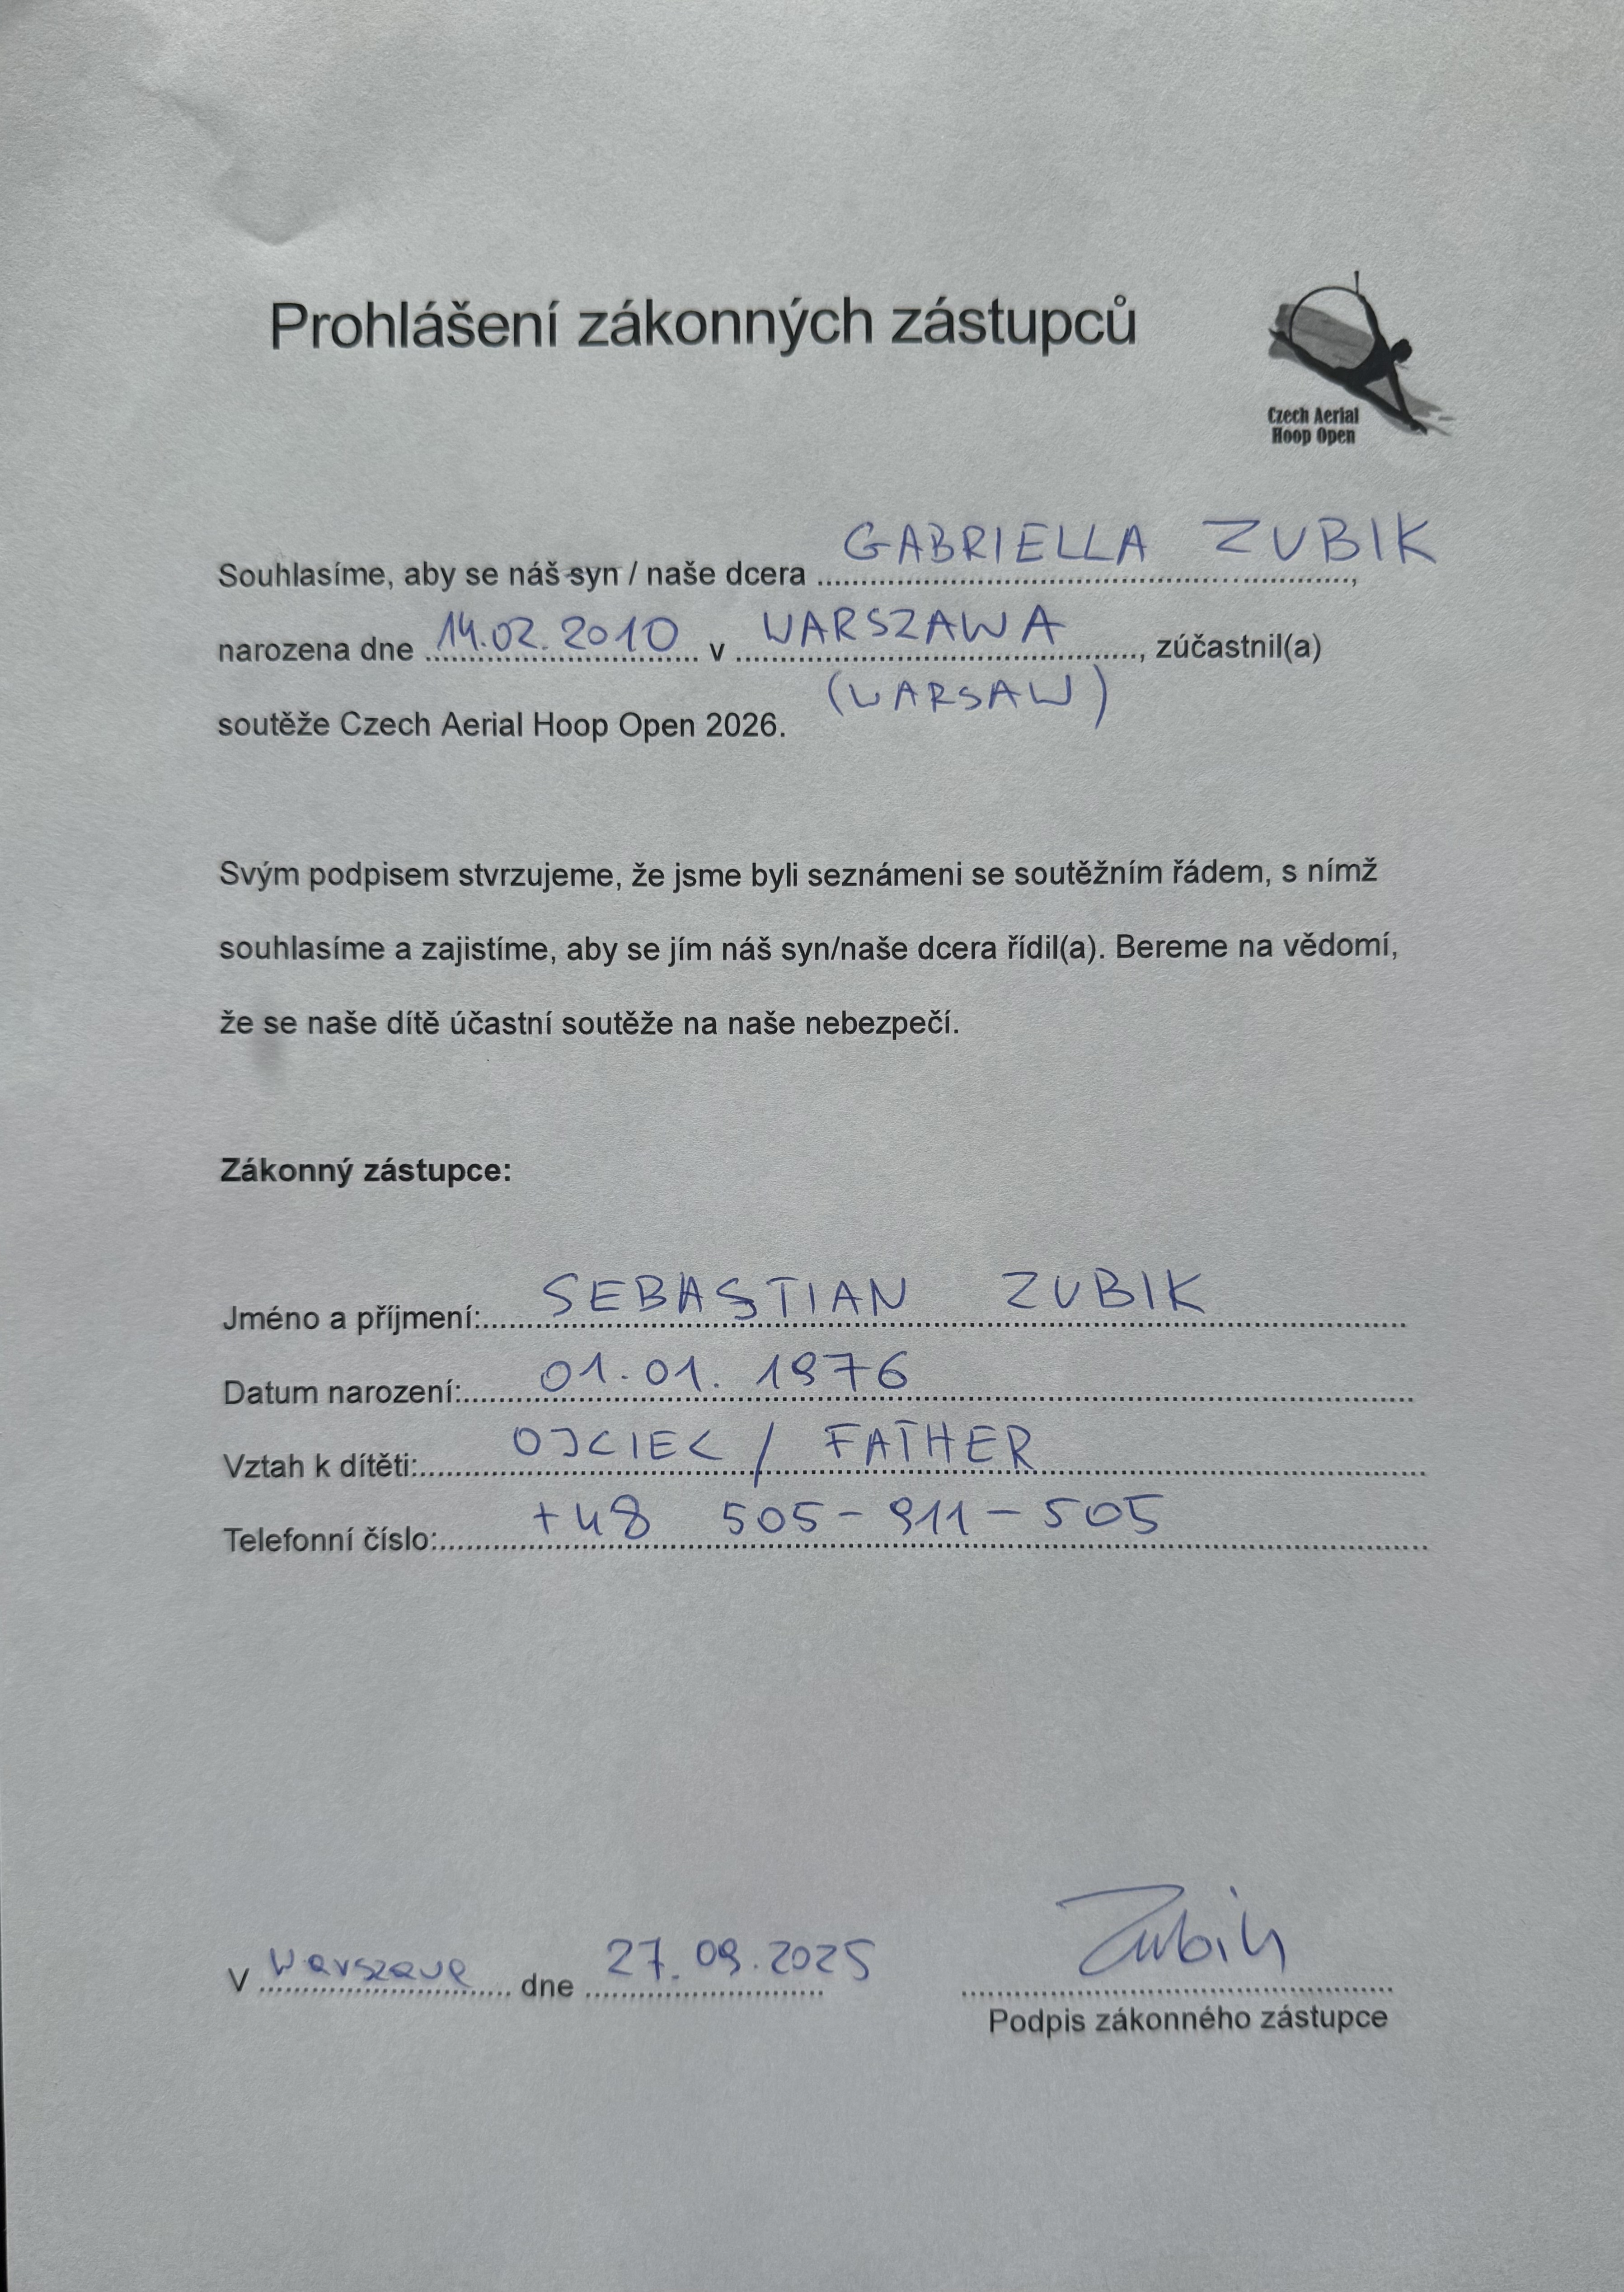 Prohlášení zákonných zástupců
Czech Aerial
Hoop Open
Souhlasíme, aby se náš syn / naše dcera GABRIELLA ZUBIK,
narozena dne 14.02.2010 v WARSZAWA, zúčastnil(a)
(WARSAW)
soutěže Czech Aerial Hoop Open 2026.
Svým podpisem stvrzujeme, že jsme byli seznámeni se soutěžním řádem, s nímž
souhlasíme a zajistíme, aby se jím náš syn/naše dcera řídil(a). Bereme na vědomí,
že se naše dítě účastní soutěže na naše nebezpečí.
Zákonný zástupce:
Jméno a příjmení: SEBASTIAN ZUBIK
Datum narození: 01.01.1976
Vztah k dítěti: OJCIEC / FATHER
Telefonní číslo: +48 505-911-505
V Warszawa dne 27.09.2025 Zubik
Podpis zákonného zástupce